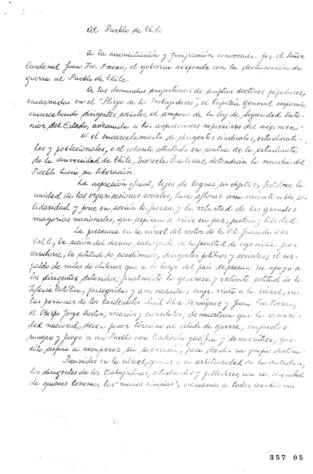 Al Pueblo de Chile
A la reconciliación y pacificación convocada por el Señor
Cardenal Juan Fco. Fresno, el gobierno responde con la declaración de
guerra al Pueblo de Chile.
A las demandas de amplios sectores populares,
encarnadas en el "Pliego de los Trabajadores", el Capitán General responde
encarcelando dirigentes sociales, al amparo de la ley de Seguridad Inte-
rior del Estado,
Ni el encarcelamiento de dirigentes sindicales, estudianti-
les y poblacionales, o el cobarde atentado en contra de la estudiante
de la Universidad de Chile, detendrán la marcha del
Pueblo hacia su liberación.
La represión oficial, lejos de lograr su objetivo, fortalece la
unidad de las organizaciones sociales, hace aflorar so-
lidaridad y pone en acción la fuerza y la voluntad de las grandes
mayorías nacionales, que aspiran a vivir en paz, justicia y libertad.
La presencia en la cárcel del rector de la
la acción del decano de la facultad de ingeniería
la actitud de académicos, dirigentes políticos y sociales, el res-
paldo de miles de chilenos que a lo largo del país expresan su apoyo a
los dirigentes detenidos; finalmente la generosa y valiente actitud de la
Iglesia Católica, perseguida y
las personas de los Cardenales Raúl Silva Henríquez y Juan Fco. Fresno,
el Obispo Jorge Hourton, vicarios y sacerdotes, demuestran que la
nacional, desea poner término al estado de guerra, impuesto a
sangre y fuego a un Pueblo con tradición pacífica y democrática, que
sólo aspira a recuperar su soberanía, para decidir su propio destino.
Reunidos en la cárcel, gracias a la arbitrariedad de la dictadura,
los dirigentes de los trabajadores, estudiantes y pobladores, con la
de quienes tenemos las "manos limpias", llamamos a todos los chilenos
357 05